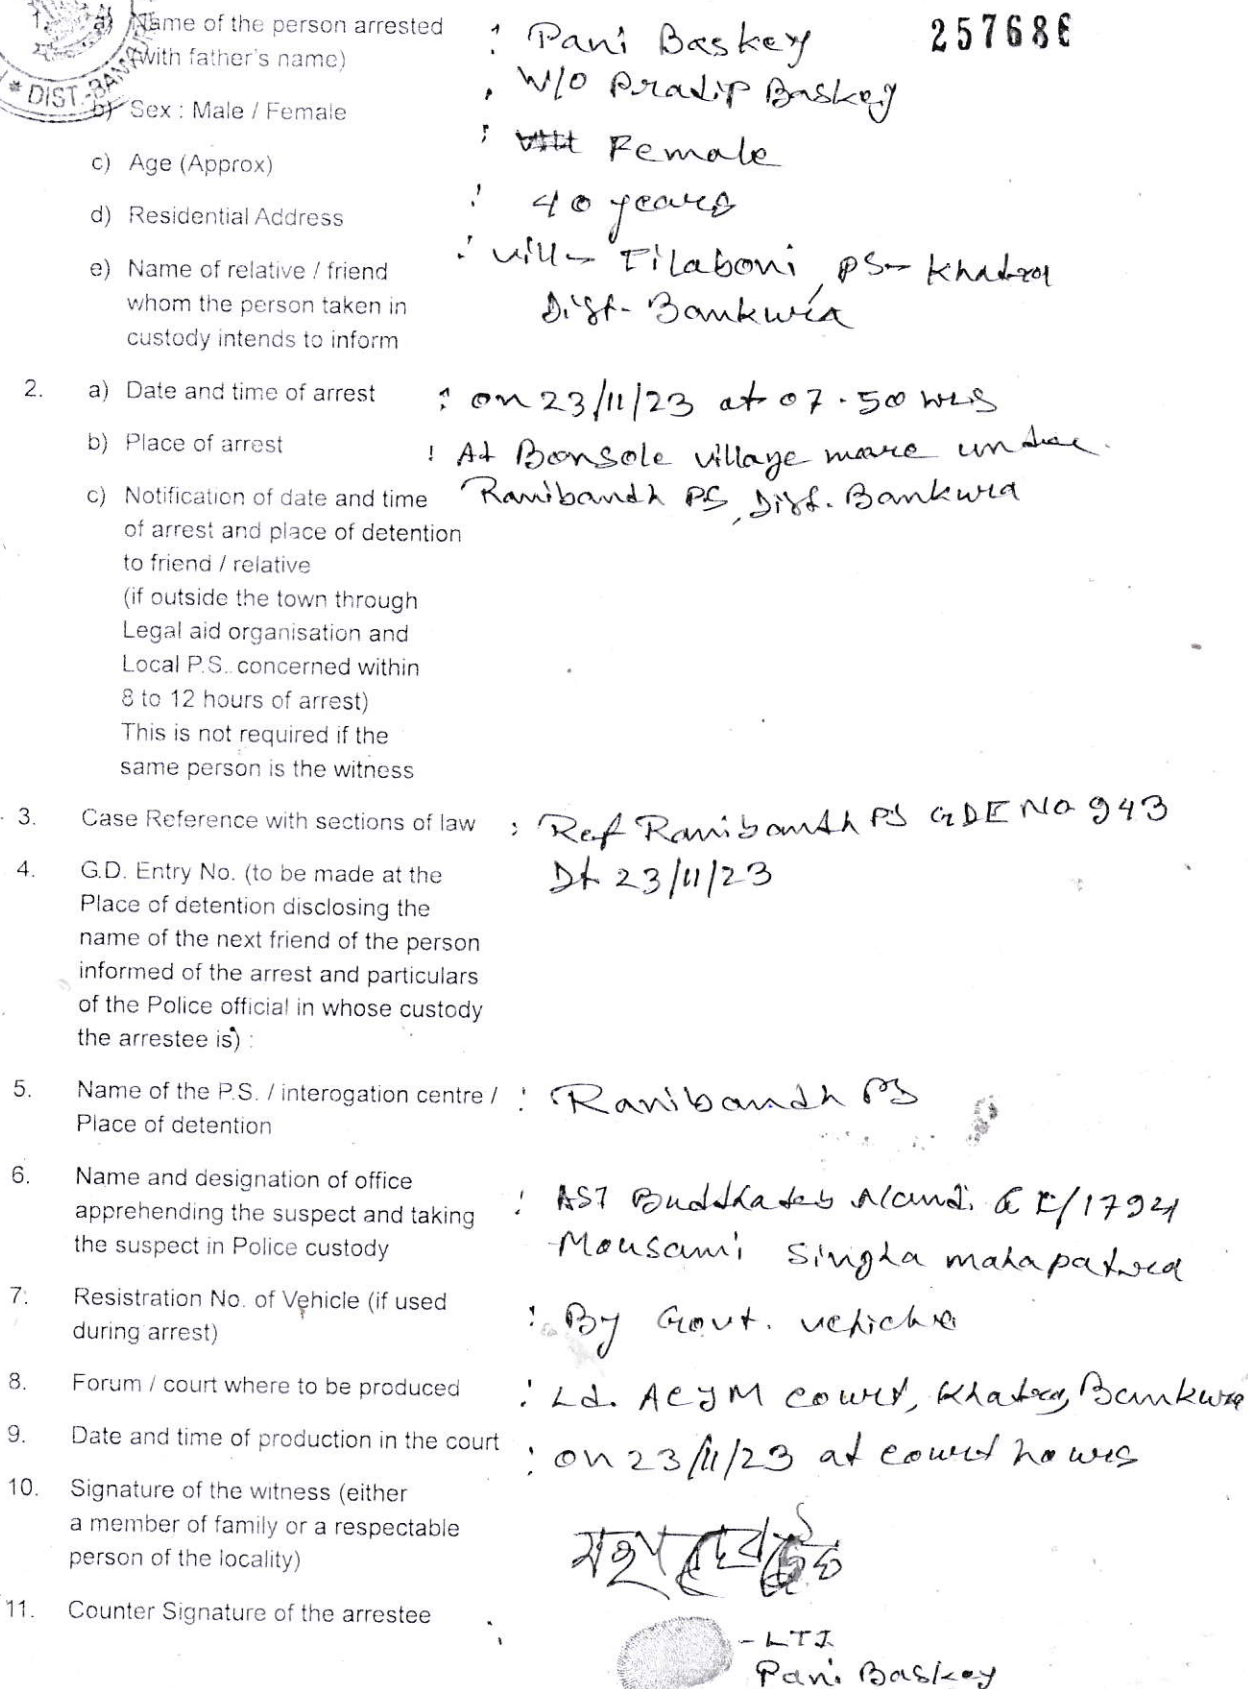 257686
1. a) Name of the person arrested : Pani Baskey
(with father's name) , W/O Pradip Baskey
DIST.-BANKURA
b) Sex : Male / Female : Female
c) Age (Approx) : 40 years
d) Residential Address : vill- Tilaboni, PS- Khatra
e) Name of relative / friend Dist- Bankura
whom the person taken in
custody intends to inform
2. a) Date and time of arrest : on 23/11/23 at 07.50 hrs
b) Place of arrest : At Bonsole village more under
c) Notification of date and time Ranibandh PS, Dist. Bankura
of arrest and place of detention
to friend / relative
(if outside the town through
Legal aid organisation and
Local P.S. concerned within
8 to 12 hours of arrest)
This is not required if the
same person is the witness
3. Case Reference with sections of law : Ref Ranibandh PS GDE No 943
4. G.D. Entry No. (to be made at the Dt 23/11/23
Place of detention disclosing the
name of the next friend of the person
informed of the arrest and particulars
of the Police official in whose custody
the arrestee is) :
5. Name of the P.S. / interogation centre / : Ranibandh PS
Place of detention
6. Name and designation of office
apprehending the suspect and taking : ASI Buddhadeb Nandi & C/1794
the suspect in Police custody Mousami Singha mahapatra
7. Resistration No. of Vehicle (if used
during arrest) : By Govt. vehicle
8. Forum / court where to be produced : Ld. ACJM court, Khatra, Bankura
9. Date and time of production in the court : on 23/11/23 at court hours
10. Signature of the witness (either
a member of family or a respectable
person of the locality)
11. Counter Signature of the arrestee :
- LTI
Pani Baskey